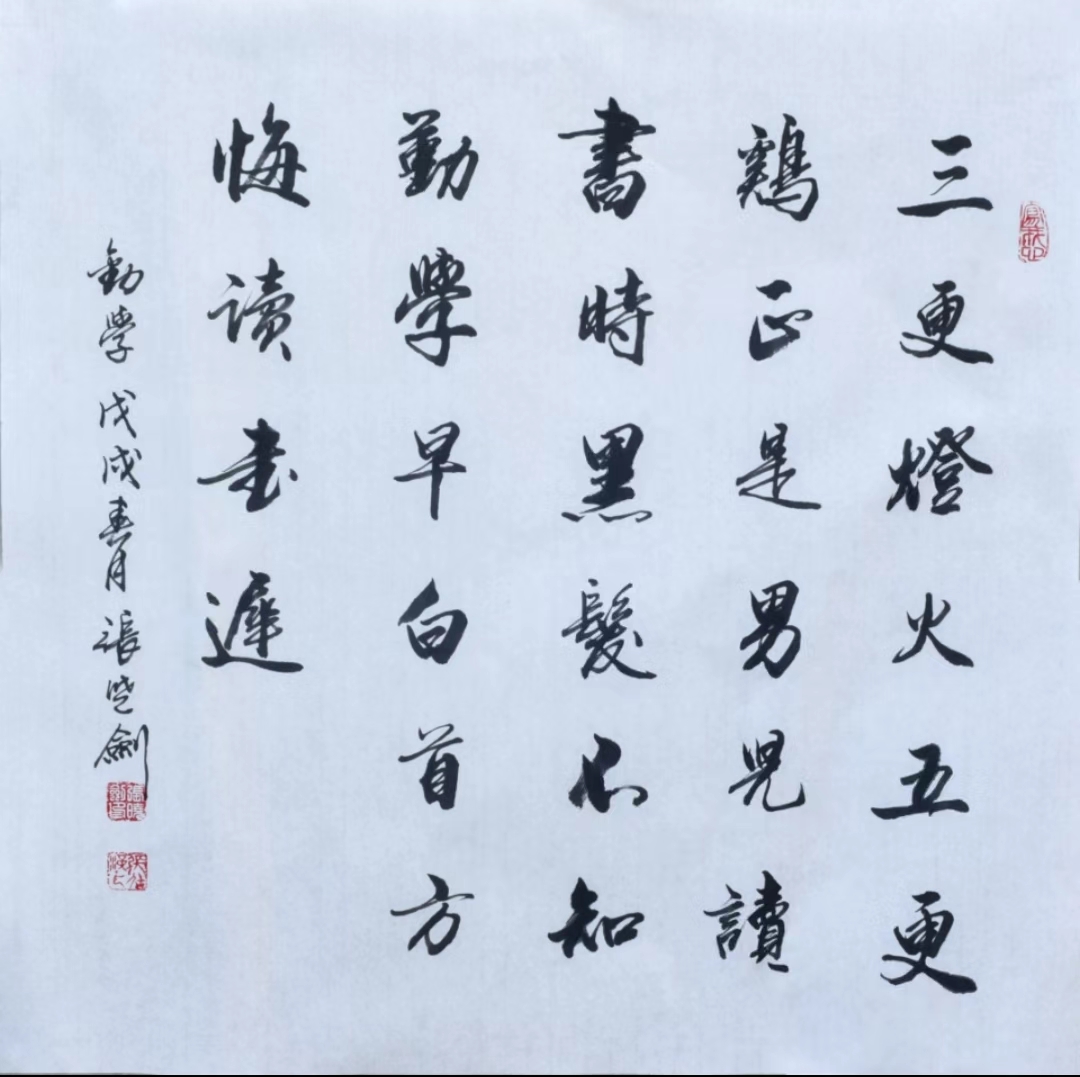 三更燈火五更
鷄正是男兒讀
書時黑髮不知
勤學早白首方
悔读书遲
勸學 戊戌春月 張曉劍